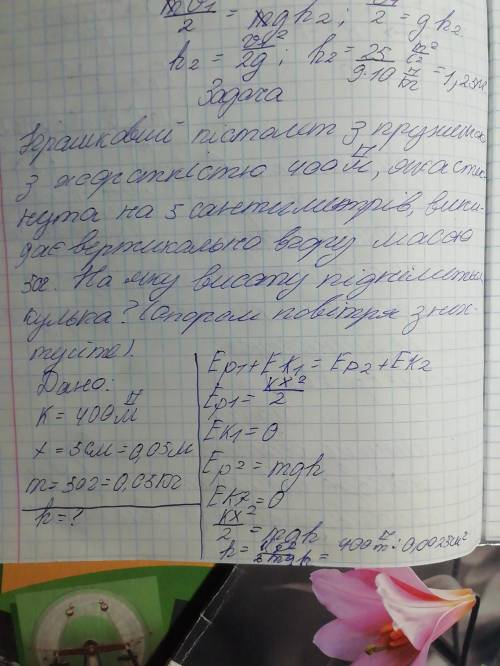 mv₁²/2 = mgh₂; v₁²/2 = gh₂
h₂ = v₁²/2g; h₂ = 25 м²/с² / 2·10 Н/кг = 1,25м
Задача
Іграшковий пістолет з пружиною
з жорсткістю 400 Н/м, яка стис
нута на 5 сантиметрів, вики
дає вертикально вгору масою
На яку висоту підніметься
кулька? (опором повітря знех
туйте).
Дано:
K = 400 Н/м
x = 5см = 0,05м
h = ?
Ep1 + Ek1 = Ep2 + Ek2
Ep1 = kx²/2
Ek1 = 0
Ep2 = mgh
Ek2 = 0
kx²/2 = mgh
h = = 400 Н/м · 0,0025м²